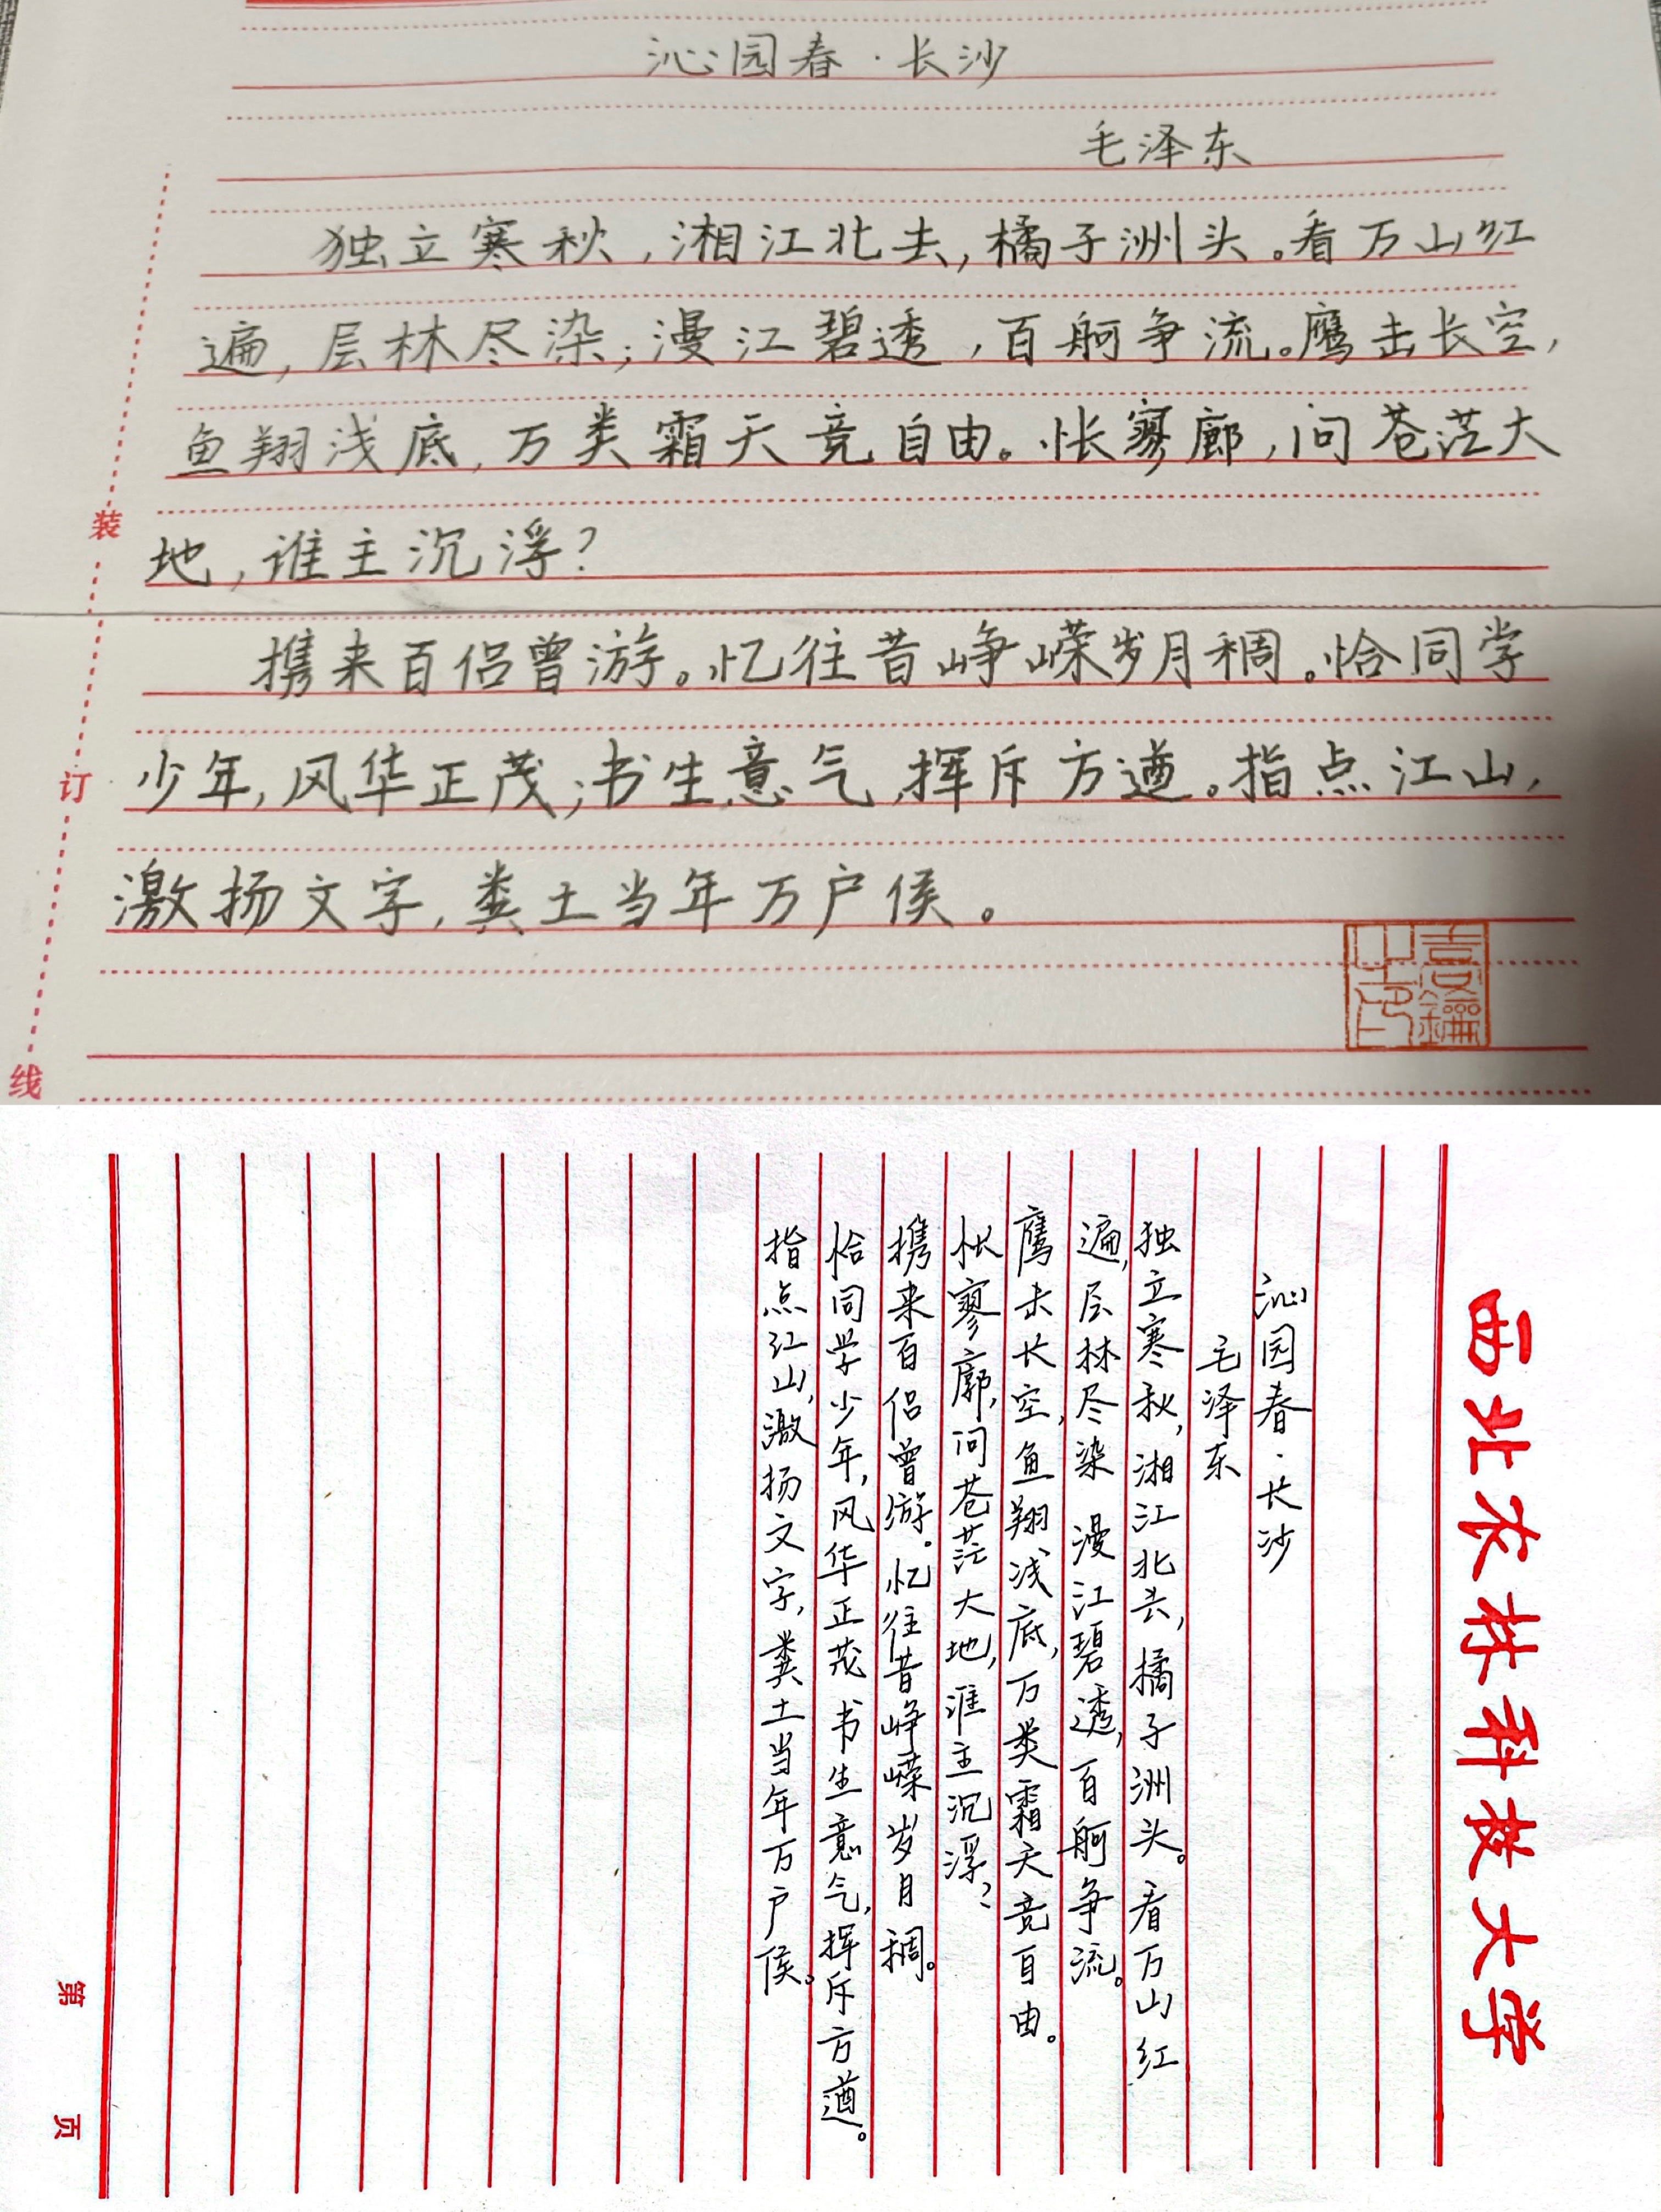 沁园春·长沙
毛泽东
独立寒秋,湘江北去,橘子洲头。看万山红
遍,层林尽染;漫江碧透,百舸争流。鹰击长空,
鱼翔浅底,万类霜天竞自由。怅寥廓,问苍茫大
地,谁主沉浮?
携来百侣曾游。忆往昔峥嵘岁月稠。恰同学
少年,风华正茂;书生意气,挥斥方遒。指点江山,
激扬文字,粪土当年万户侯。
装
订
线
西北农林科技大学
沁园春·长沙
毛泽东
独立寒秋,湘江北去,橘子洲头。看万山红
遍,层林尽染 漫江碧透,百舸争流。
鹰击长空,鱼翔浅底,万类霜天竞自由。
怅寥廓,问苍茫大地,谁主沉浮?
携来百侣曾游。忆往昔峥嵘岁月稠。
恰同学少年,风华正茂 书生意气,挥斥方遒。
指点江山,激扬文字,粪土当年万户侯。
第 页